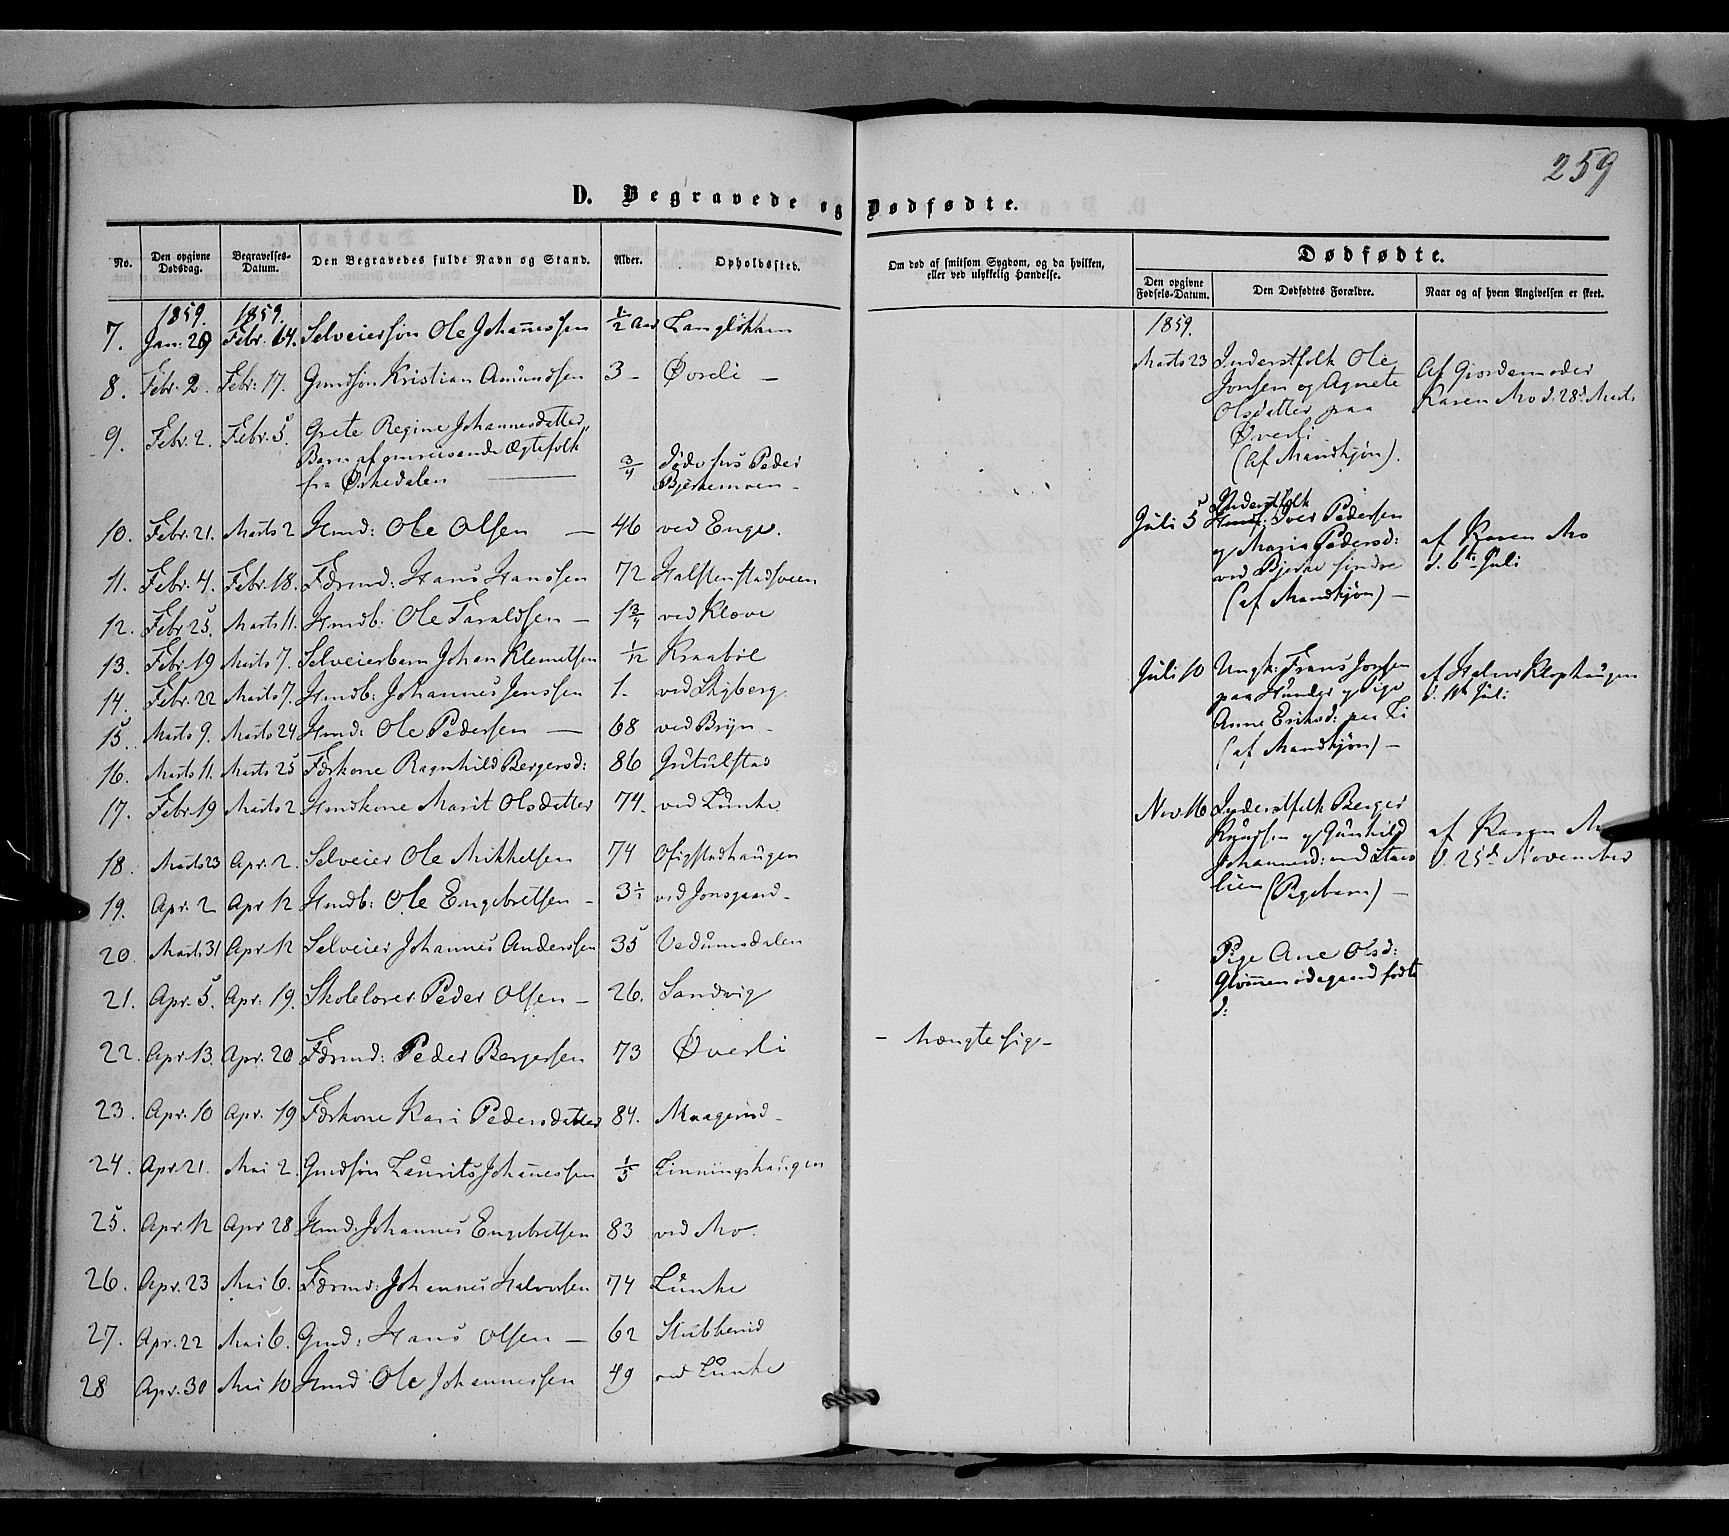 259
D. Begravede og Dødfødte.
No. Den opgivne Dødsdag. Begravelses-Datum. Den Begravedes fulde Navn og Stand. Alder. Opholdssted.
Om død af smitsom Sygdom, og da hvilken, eller ved ulykkelig Hændelse.
Dødfødte.
Den opgivne Fødsels-Datum. Den Dødfødtes Forældre. Naar og af hvem Angivelsen er skeet.
1859. 1859.
7. Jan. 29 Febr. 14. Selveiersøn Ole Johannessen 1/2 Langløkken
8. Febr. 2. Febr: 17. Gmdsøn Kristian Amundsen 3 - Øverli -
9. Febr. 2. Febr. 5. Grete Regine Johannesdatter,
Barn af omreisende Ægtefolk
fra Orkedalen 3/4 Peder
Bjerkemoen -
10. Febr. 21. Marts 2 Hmd: Ole Olsen - 46 ved Enge.
11. Febr. 4. Febr. 18. Førmd: Hans Hanssen 72 Halstenstadsveen
12. Febr. 25. Marts 11. Hmdb: Ole Taraldsen - 1 3/4 ved Kløve
13. Febr. 19 Marts 7. Selveierbarn Johan Klemetsen 1/12 Kraabøl
14. Febr. 22 Marts 7. Hmdb: Johannes Jenssen 1. ved Skyberg.
15. Marts 9. Marts 24 Hmd: Ole Pedersen - 68 ved Bryn -
16. Marts 11. Marts 25 Førkone Ragnhild Bergersd: 86 Jutulstad
17. Febr. 19 Marts 2 Hmdkone Marit Olsdatter 74. ved Lunke
18. Marts 23 Apr. 2. Selveier Ole Mikkelsen 74 Ofigstadhaugen
19. Apr. 2 Apr 12 Hmdb: Ole Engebretsen - 3 1/2 ved Jonsgaard -
20. Marts 31 Apr. 12 Selveier Johannes Anderssen 35 Vedumsdalen
21. Apr. 5. Apr: 19. Skolelærer Peder Olsen - 26. Sandvig
22. Apr. 13. Apr. 20 Førmd: Peder Bergersen 73 Øverli
23. Apr. 10 Apr. 19 Førkone Kari Pedersdatter 84. Maagerud -
24. Apr. 21. Mai 2. Gmdsøn Laurits Johannessen 1/5 Linningshaugen
25. Apr. 12 Apr 28 Hmd: Johannes Engebretsen 83 ved Mo.
26. Apr. 23 Mai 6. Førmd: Johannes Halvorsen 74 Lunke
27. Apr. 22 Mai 6. Gmd: Hans Olsen - 62 Stubberud
28 Apr. 30 Mai 10 Hmd: Ole Johannessen 49 ved Lunke
1859.
Marts 23 Inderstfolk Ole
Jonsen og Agnete
Olsdatter paa
Øverli
(af Mandkjøn).
Af Giordemoder
Karen Mo d. 28d Marts
Juli 5 Inderstfolk
Hmd: Iver Pedersen
og Maria Pedersd:
ved Bjerke søndre
(af Mandkjøn) -
af Karen Mo
d. 6te Juli
Juli 10 Ungk: Frans Jonsen
paa Hunder og Pige
Anne Eriksd: paa Li
(af Mandkjøn) -
af Klophaugen
d. 11te Juli
Nov. 16 Inderstfolk Berger
Knudsen og Gunhild
Johannesd: ved
lien (Pigebarn) -
af Karen Mo
d. 25d November
Pige Ane Olsd:
Glømmenødegaard fødte
d: